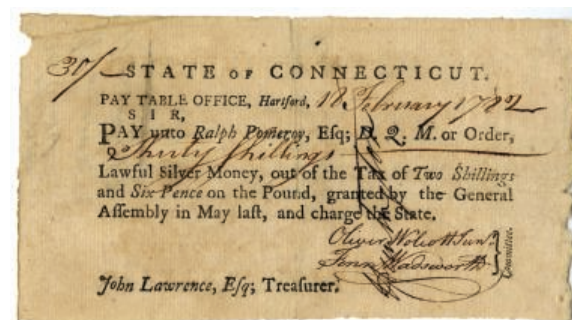 30/ STATE OF CONNECTICUT.
PAY TABLE OFFICE, Hartford, 18 February 1782
S I R,
PAY unto Ralph Pomeroy, Esq; D. Q. M. or Order,
Thirty Shillings
Lawful Silver Money, out of the Tax of Two Shillings
and Six Pence on the Pound, granted by the General
Aſſembly in May laſt, and charge the State.
Oliver Wolcott Junr
Fenn Wadsworth
Committee.
John Lawrence, Eſq; Treaſurer.